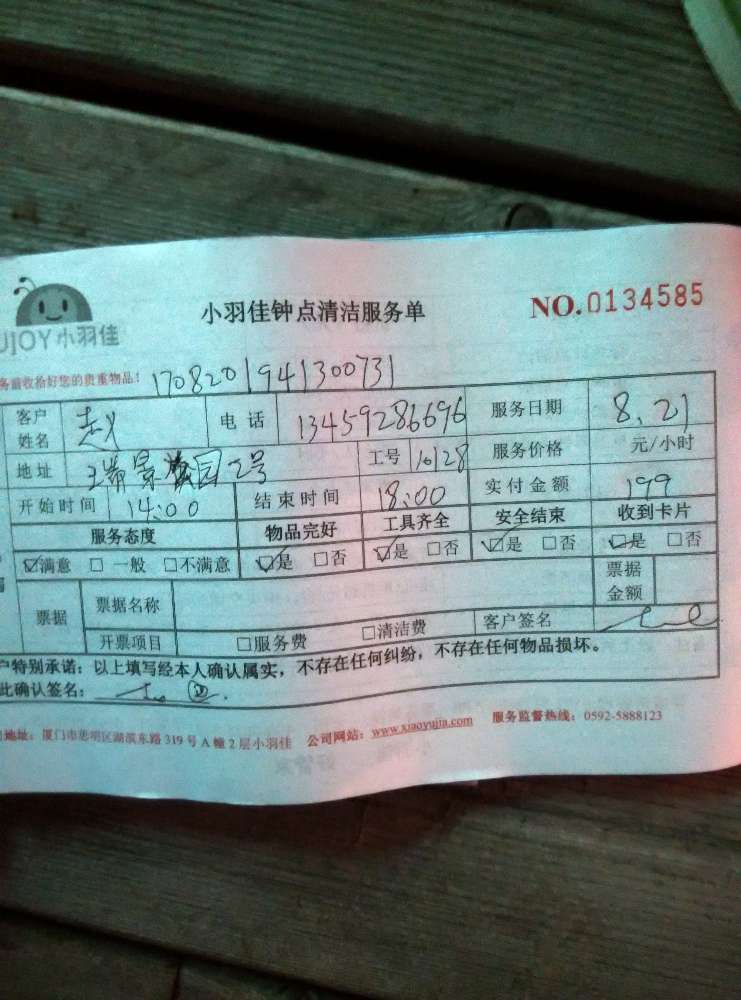 UJOY小羽佳
小羽佳钟点清洁服务单
NO.0134585
务前收拾好您的贵重物品！ 170820194130073
客户姓名 电话 13459286696 服务日期 8.21
地址 园2号 工号 16128 服务价格 元/小时
开始时间 14:00 结束时间 18:00 实付金额 199
服务态度 物品完好 工具齐全 安全结束 收到卡片
☑满意 □一般 □不满意 ☑是 □否 ☑是 □否 ☑是 □否 ☑是 □否
票据 票据名称 票据金额
开票项目 □服务费 □清洁费 客户签名
户特别承诺：以上填写经本人确认属实，不存在任何纠纷，不存在任何物品损坏。
此确认签名：
地址：厦门市思明区湖滨东路319号A幢2层小羽佳 公司网站：www.xiaoyujia.com 服务监督热线：0592-5888123